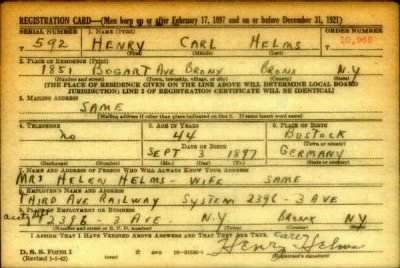 REGISTRATION CARD—(Men born on or after February 17, 1897 and on or before December 31, 1921)
SERIAL NUMBER 1. NAME (Print) ORDER NUMBER
T 592 HENRY CARL HELMS 10,966
(First) (Middle) (Last)
2. PLACE OF RESIDENCE (Print)
1851 BOGART AVE BRONX BRONX N.Y
(Number and street) (Town, township, village, or city) (County) (State)
[THE PLACE OF RESIDENCE GIVEN ON THE LINE ABOVE WILL DETERMINE LOCAL BOARD
JURISDICTION; LINE 2 OF REGISTRATION CERTIFICATE WILL BE IDENTICAL]
3. MAILING ADDRESS
SAME
[Mailing address if other than place indicated on line 2. If same insert word same]
4. TELEPHONE 5. AGE IN YEARS 6. PLACE OF BIRTH
NO 44
DATE OF BIRTH (Town or county)
SEPT 3 1897 GERMANY
(Exchange) (Number) (Mo.) (Day) (Yr.) (State or country)
7. NAME AND ADDRESS OF PERSON WHO WILL ALWAYS KNOW YOUR ADDRESS
MRS HELEN HELMS - WIFE SAME
8. EMPLOYER'S NAME AND ADDRESS
THIRD AVE RAILWAY SYSTEM 2396 - 3 AVE
9. PLACE OF EMPLOYMENT OR BUSINESS
2396 - 3 AVE - N.Y BRONX N.Y
(Number and street or R. F. D. number) (Town) (County) (State)
I AFFIRM THAT I HAVE VERIFIED ABOVE ANSWERS AND THAT THEY ARE TRUE.
D. S. S. Form 1 Henry Helms
(Revised 1-1-42) GPO (Registrant's signature)